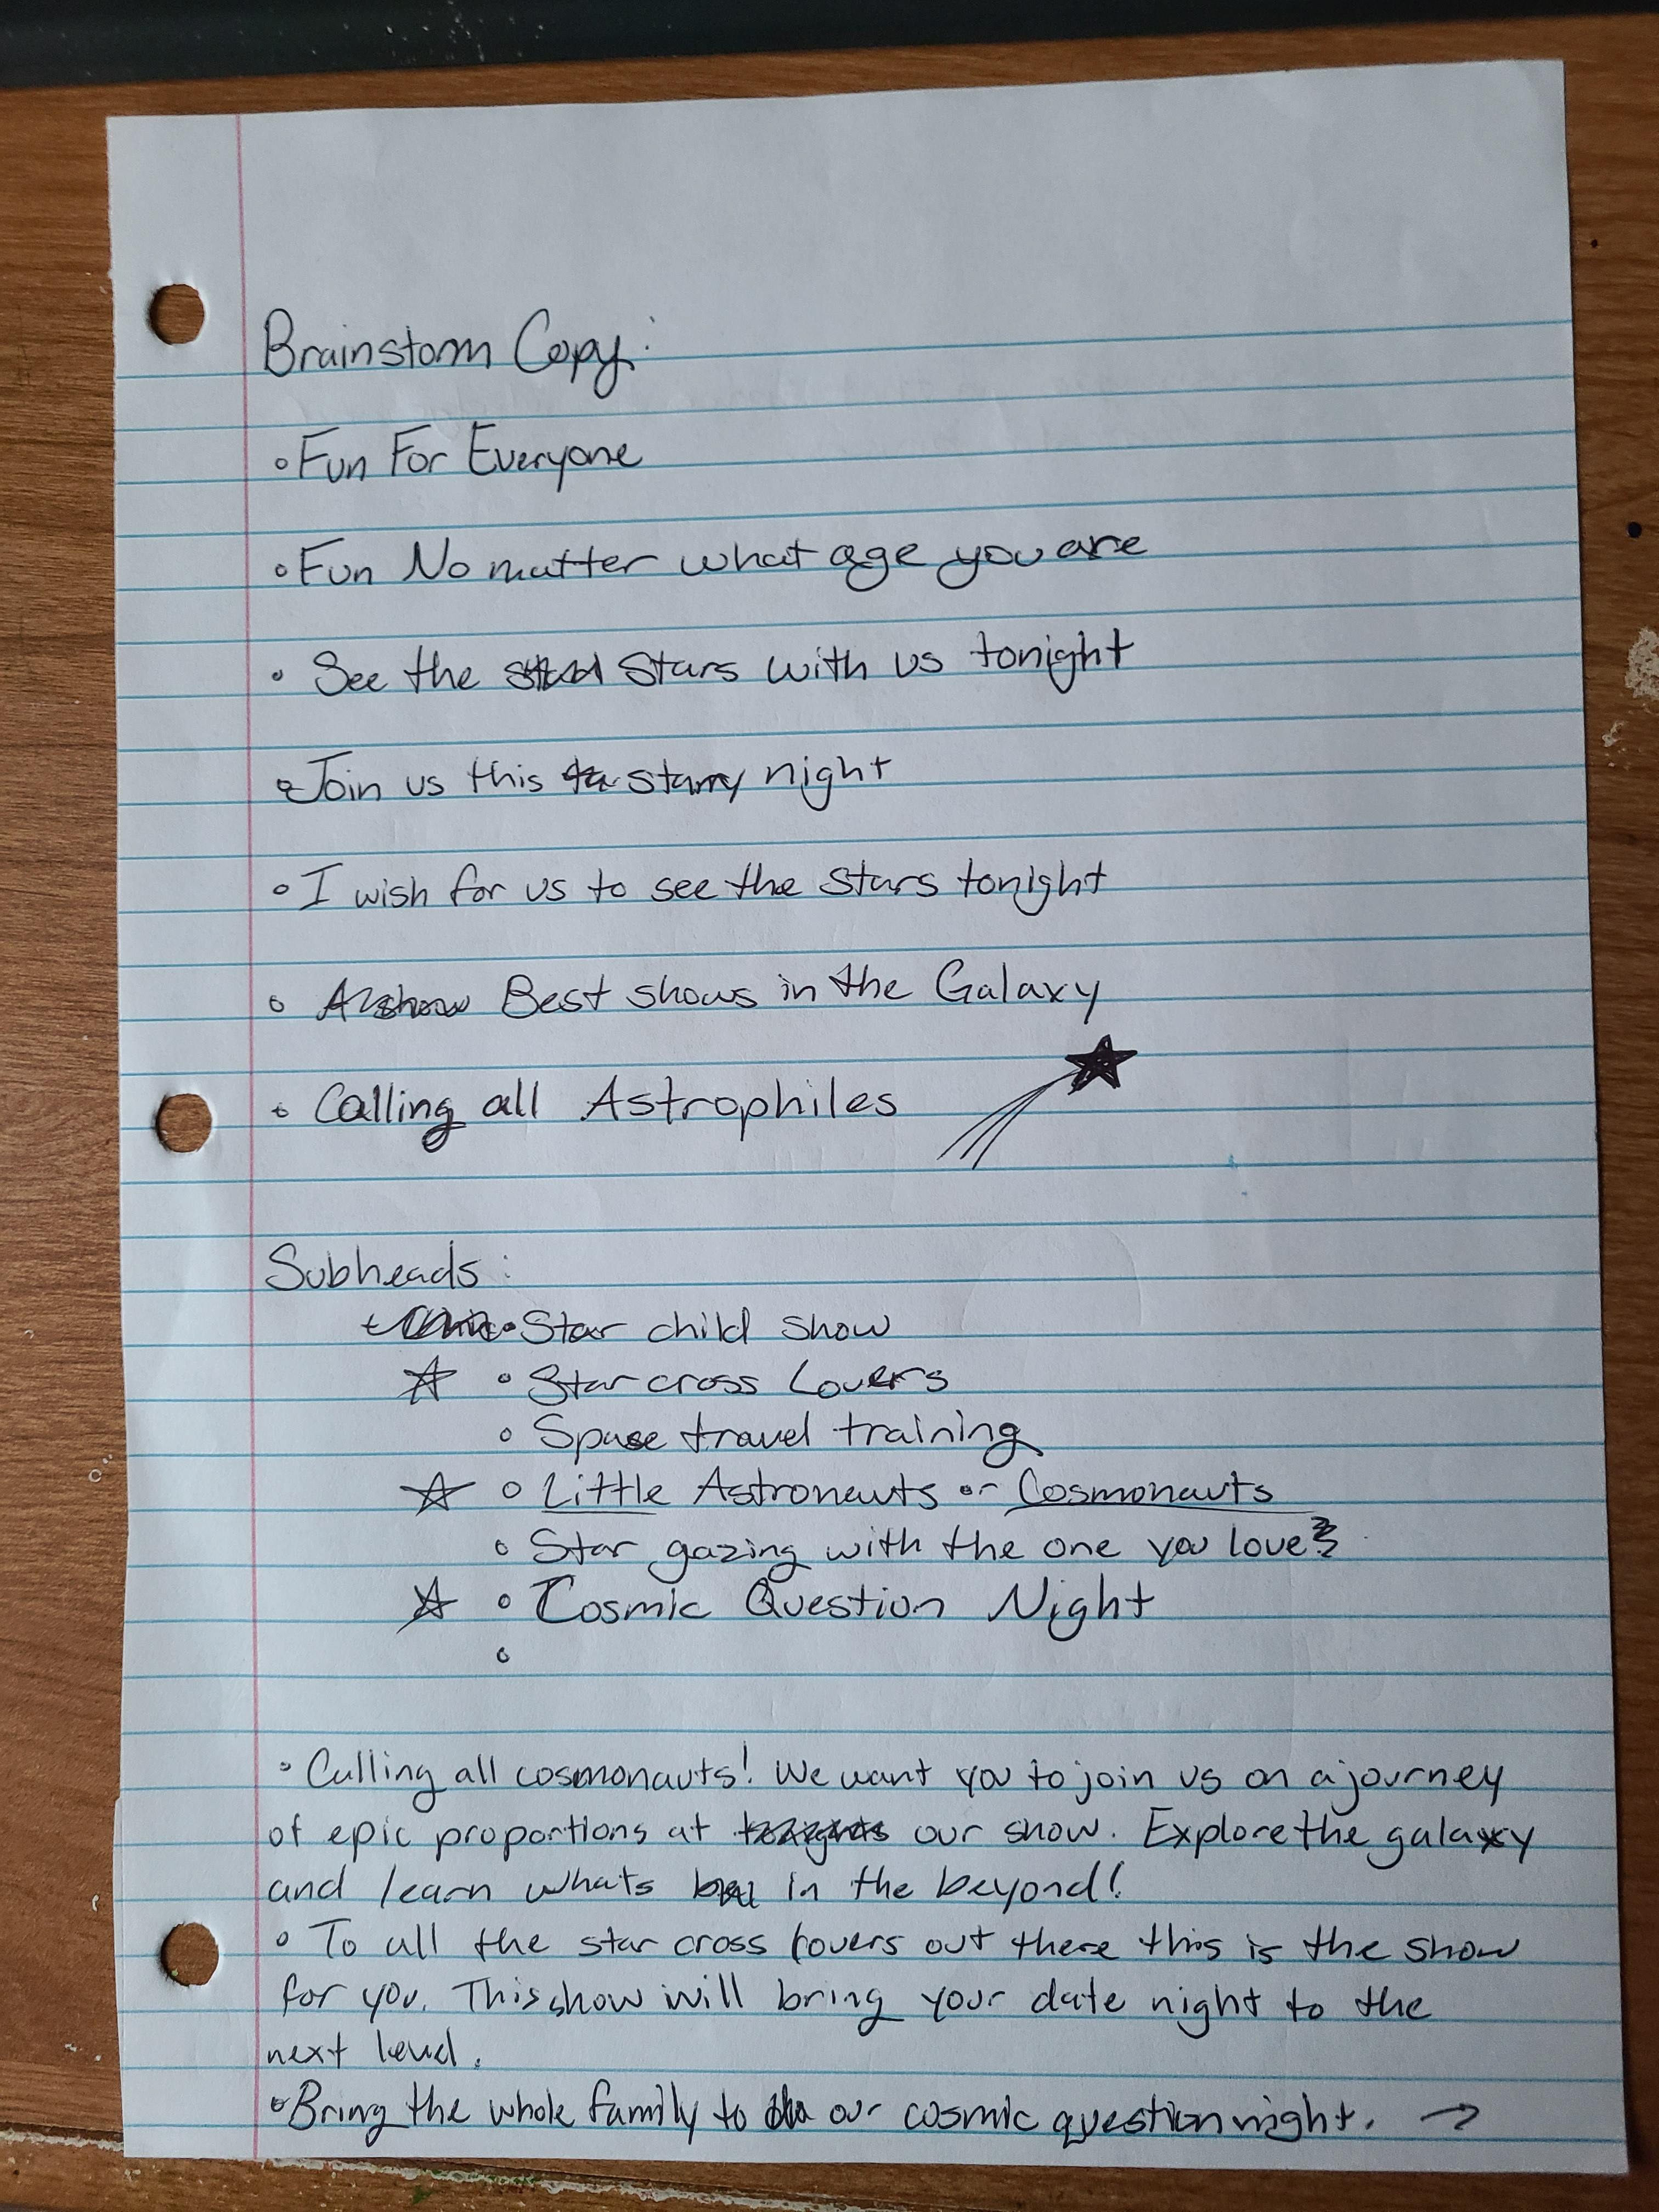 Brainstorm Copy:
• Fun For Everyone
• Fun No matter what age you are
• See the Stars with us tonight
• Join us this starry night
• I wish for us to see the Stars tonight
• A show Best shows in the Galaxy
• Calling all Astrophiles
Subheads:
• Star child show
• Star cross Lovers
• Space travel training
• Little Astronauts or Cosmonauts
• Star gazing with the one you love
• Cosmic Question Night
•
• Calling all cosmonauts! We want you to join us on a journey
of epic proportions at our show. Explore the galaxy
and learn whats in the beyond!
• To all the star cross lovers out there this is the show
for you. This show will bring your date night to the
next level.
• Bring the whole family to our cosmic question night. →